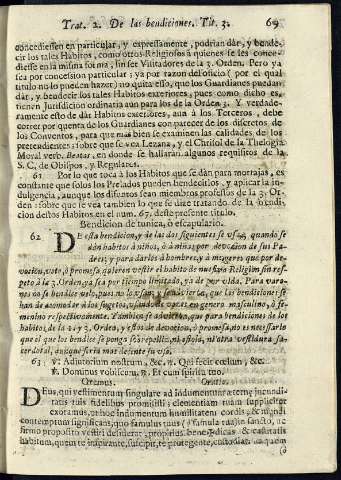 Trat. 2. De las bendiciones. Tit. 3. 69
concediessen en particular, y expressamente, podrian dàr, y bende-
cir los tales Habitos, como otros Religiosos à quienes se les conce-
diesse en la misma forma, sin ser Visitadores de la 3. Orden. Pero ya
sea por concession particular; ya por razon del oficio (por el qual
titulo no lo pueden hazer) no quita esso, que los Guardianes puedan
dàr, y bendecir los tales Habitos exteriores, pues como dicho es,
tienen Jurisdicion ordinaria aun para los de la Orden 3. Y verdade-
ramente esto de dàr Habitos exteriores, aun à los Terceros, debe
correr por quenta de los Guardianes con parecer de los discretos de
los Conventos, para que mas bien se examinen las calidades de los
pretendientes: sobre que se vea Lezana, y el Chrisol de la Thelogia
Moral verb. Beatas, en donde se hallaràn algunos requisitos de la
S. C. de Obispos, y Regulares.
61 Por lo que toca à los Habitos que se dàn para mortajas, es
constante que solos los Prelados pueden bendecirlos, y aplicar la in-
dulgencia, aunque los difuntos sean miembros professos de la 3. Or-
den: sobre que se vea tambien lo que se dize tratando de la bendi-
cion destos Habitos en el num. 67. deste presente titulo.
Bendicion de tunica, ò escapulario.
62 DE esta bendicion, y de las dos siguientes se usa, quando se
dàn habitos à niños, ò à niñas por devocion de sus Pa-
dres; y para darlos à hombres, y à mugeres que por de-
vocion, voto, ò promesa, quieren vestir el habito de nuestra Religion sin res-
peto à la 3. Orden, ya sea por tiempo limitado, ya de por vida. Para varo-
nes no se bendice velo, pues no lo usan; y se advierte, que las bendiciones se
han de acomodar à los sugetos, usando de ellas en genero masculino, ò fe-
menino respectivamente. Tambien se advierte, que para bendiciones de los
habitos, de la 2. y 3. Orden, y estos de devocion, ò promesa, no es necessario
que el que los bendice se ponga sobrepelliz, ni estola, ni otra vestidura sa-
cerdotal, aunque seria mas decente su uso.
63 ℣. Adiutorium nostrum, &c. ℟. Qui fecit coelum, &c.
℣. Dominus vobiscum. ℟. Et cum spiritu tuo.
Oremus. Oratio.
DEus, qui vestimentum singulare ad indumentum æternę jucundi-
tatis tuis fidelibus promisisti: clementiam tuam suppliciter
exoramus, ut hoc indumentum humilitatem cordis, & mundi
contemptum significans, quo famulus tuus (vel famula tua) in sancto, ac
firmo proposito vestiri desiderat, proprius benedicas, & castitatis
habitum, quem te inspirante, suscipit, te protegente, custodiat, ut quem